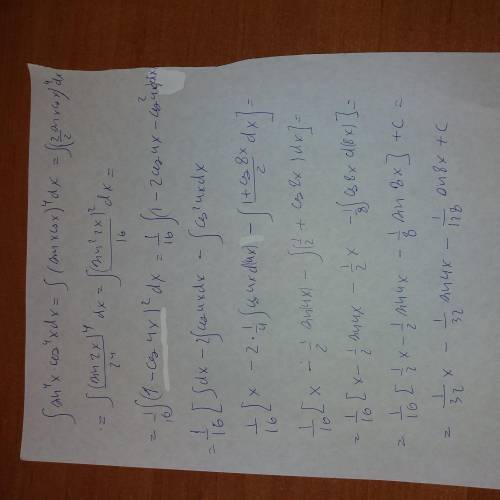 ∫sin⁴x cos⁴x dx = ∫(sinx cosx)⁴ dx = ∫(2sinx cosx / 2)⁴ dx
= ∫ (sin 2x)⁴ / 2⁴ dx = ∫ (sin² 2x)² / 16 dx =
= 1/16 ∫(1 - cos 4x)² dx = 1/16 ∫(1 - 2cos 4x - cos² 4x)dx
= 1/16 [∫dx - 2∫cos4xdx - ∫cos²4xdx
1/16 [x - 2·1/4 ∫cos4xd(4x) - ∫ (1+cos 8x)/2 dx] =
1/16 [x - 1/2 sin(4x) - ∫(1/2 + cos 8x)dx] =
= 1/16 [x - 1/2 sin4x - 1/2 x - 1/8 ∫cos8x d(8x)] =
= 1/16 [1/2 x - 1/2 sin4x - 1/8 sin 8x] + C =
= 1/32 x - 1/32 sin4x - 1/128 sin8x + C